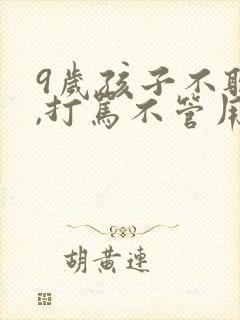 9歲孩子不聽
,打罵不管用
胡黃連